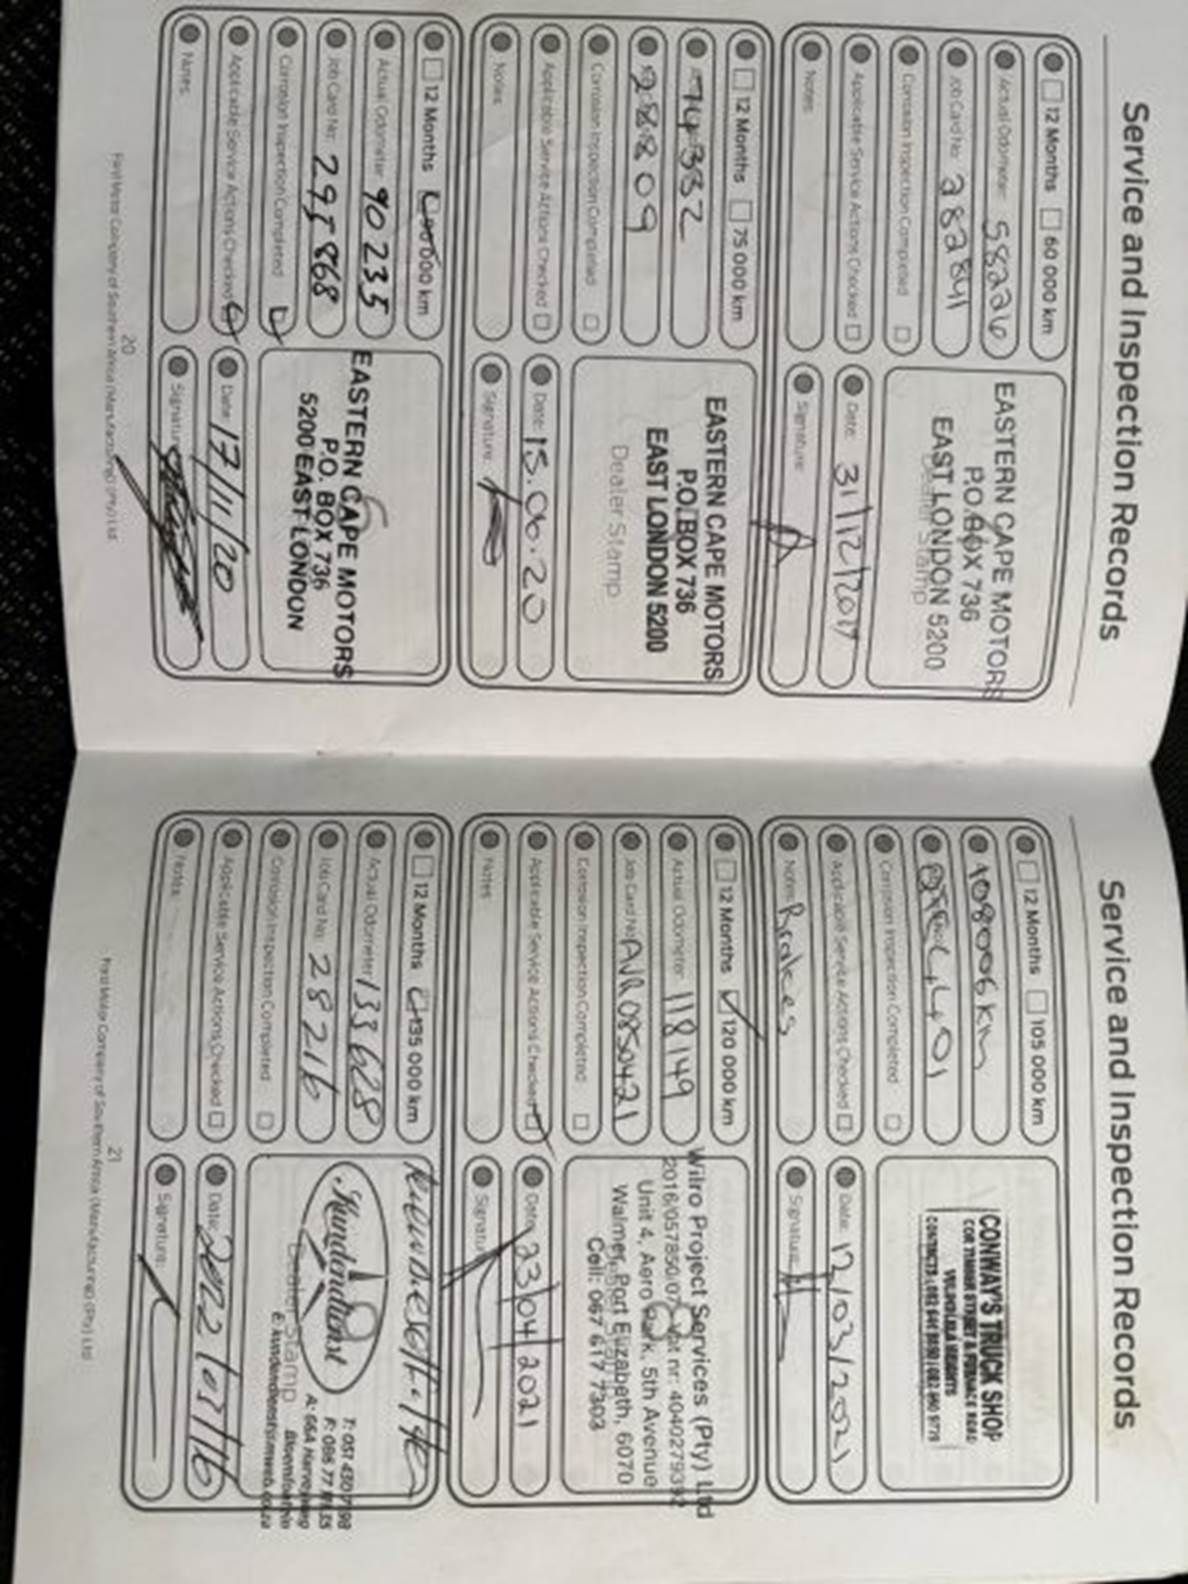 Service and Inspection Records
12 Months 60 000 km
Actual Odometer: 58226
Job Card No: 282841
Corrosion Inspection Completed
Applicable Service Actions Checked
Notes:
EASTERN CAPE MOTORS
P.O. BOX 736
EAST LONDON 5200
Dealer Stamp
Date: 31/12/2017
Signature:
12 Months 75 000 km
74332
28809
Corrosion Inspection Completed
Applicable Service Actions Checked
Notes:
EASTERN CAPE MOTORS
P.O. BOX 736
EAST LONDON 5200
Dealer Stamp
Date: 15.06.20
Signature:
12 Months 90 000 km
Actual Odometer: 90235
Job Card No: 295868
Corrosion Inspection Completed
Applicable Service Actions Checked
Notes:
EASTERN CAPE MOTORS
P.O. BOX 736
5200 EAST LONDON
Date: 17/11/20
Signature:
20
Ford Motor Company of Southern Africa (Manufacturing) (Pty) Ltd
Service and Inspection Records
12 Months 105 000 km
108006km
Corrosion Inspection Completed
Applicable Service Actions Checked
Notes: Brakes
CONWAY'S TRUCK SHOP
Date: 12/03/2021
Signature:
12 Months 120 000 km
Actual Odometer: 118149
Job Card No: AJR0850421
Corrosion Inspection Completed
Applicable Service Actions Checked
Notes:
Wilro Project Services (Pty) Ltd
2016/057850/07 Vat nr:
Unit 4, Aero Park, 5th Avenue
Walmer, Port Elizabeth, 6070
Cell: 067 617 7303
Date: 23/04/2021
Signature:
12 Months 135 000 km
Actual Odometer: 133628
Job Card No: 28216
Corrosion Inspection Completed
Applicable Service Actions Checked
Notes:
Kundendienst
Dealer Stamp
Bloemfontein
Date: 2022/03/16
Signature:
21
Ford Motor Company of Southern Africa (Manufacturing) (Pty) Ltd